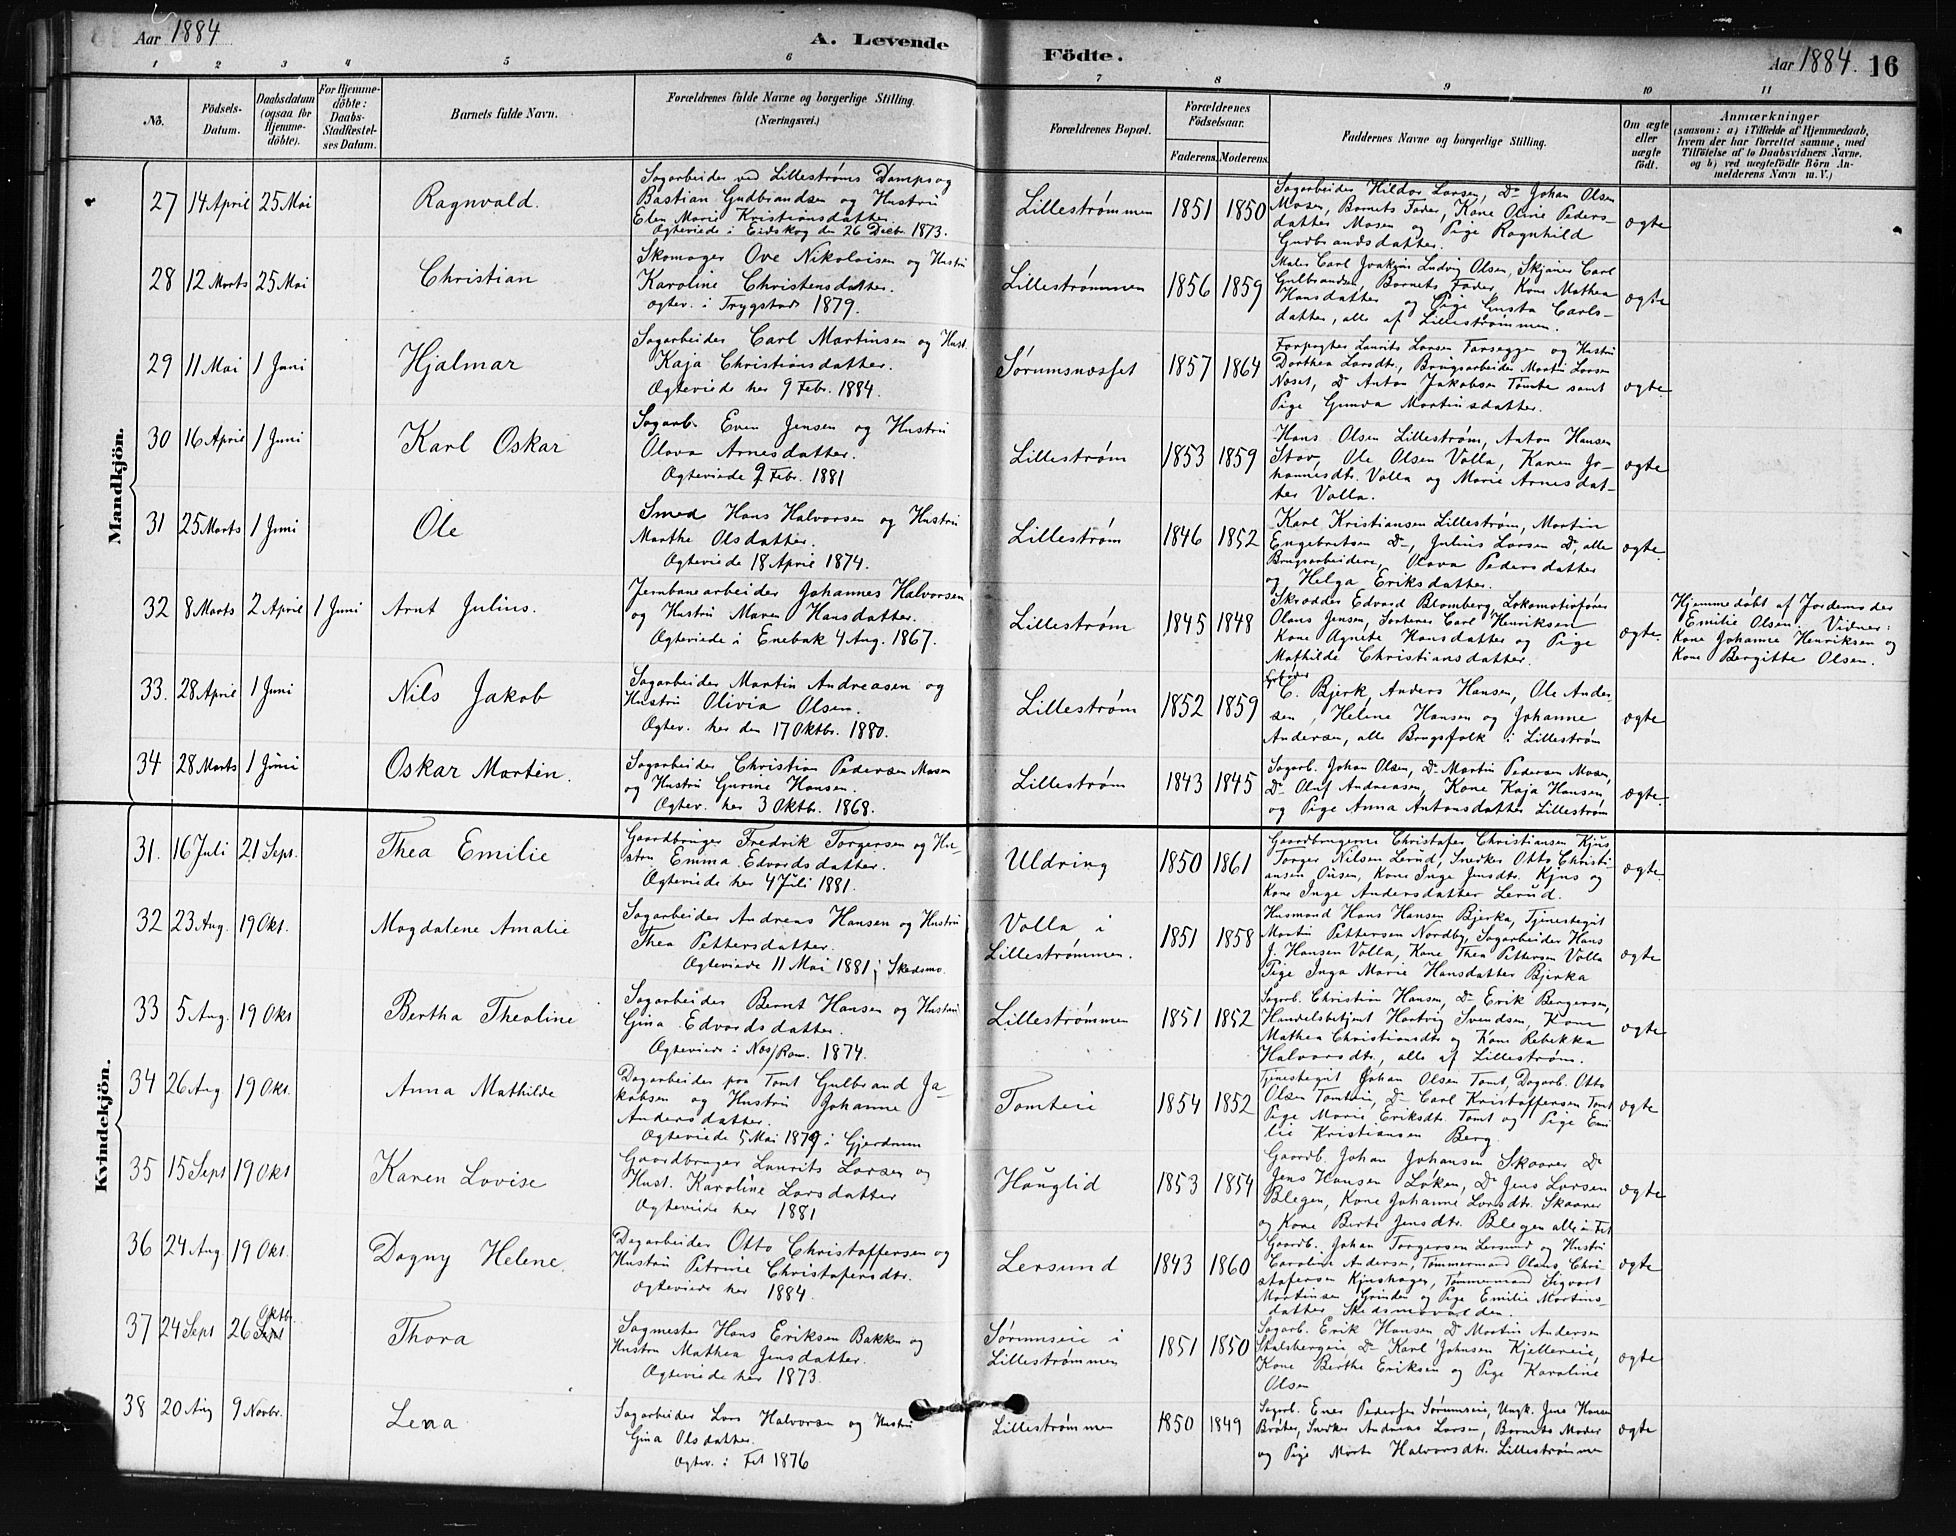 Aar 1884
A. Levende
Födte.
Aar 1884. 16
1 2 3 4 5 6 7 8 9 10 11
No.
Födsels-
Datum.
Daabsdatum
(ogsaa for
Hjemme-
döbte).
For Hjemme-
döbte:
Daabs-
Stadfæstel-
ses Datum.
Barnets fulde Navn.
Forældrenes fulde Navne og borgerlige Stilling.
(Næringsvei.)
Forældrenes Bopæl.
Forældrenes
Födselsaar.
Faderens. Moderens.
Faddernes Navne og borgerlige Stilling.
Om ægte
eller
uægte
födt.
Anmærkninger
(saasom: a) i Tilfælde af Hjemmedaab,
hvem der har forrettet samme, med
Tilföielse af to Daabsvidners Navne.
og b) ved uægtefödte Börn An-
melderens Navn m. V.)
Mandkjön.
27 14 April 25 Mai
Ragnvald.
Sagarbeider ved Lillestrøms Dampsag
Bastian Gudbrandsen og Hustru
Elen Marie Kristiansdatter.
Ægteviede i Eidskog den 26 Decbr. 1873.
Lillestrømmen 1851 1850
Sagarbeider Hildor Larsen, Do Johan Olsen
Mosen, Barnets Fader, Kone Oline Peders-
datter Mosen og Pige Ragnhild
Gudbrandsdatter.
ægte
28 12 Marts 25 Mai
Christian
Skomager Ove Nikolaisen og Hustru
Karoline Christensdatter.
Ægtev. i Trygstad 1879.
Lillestrømmen 1856 1859
Maler Carl Joakim Ludvig Olsen, Skjøner Carl
Gulbrandsen, Barnets Fader, Kone Mathea
Hansdatter og Pige Gusta Carls-
datter, alle af Lillestrømmen.
ægte
29 11 Mai 1 Juni
Hjalmar
Sagarbeider Carl Martinsen og Hust.
Kaja Christiansdatter.
Ægteviede her 9 Febr. 1884.
Sørumsnæsset 1857 1864
Forpagter Laurits Larsen Farseggen og Hustru
Dorthea Larsdtr., Brugsarbeider Martin Larsen
Næset, Do Anton Jakobsen Tomte samt
Pige Gunda Martinsdatter.
ægte
30 16 April 1 Juni
Karl Oskar
Sagarb. Even Jensen og Hustru
Olava Arnesdatter.
Ægteviede 9 Febr. 1881
Lillestrøm 1853 1859
Hans Olsen Lillestrøm, Anton Hansen
Stav, Ole Olsen Volla, Karen Jo-
hannesdtr. Volla og Marie Arnesdat-
ter Volla.
ægte
31 25 Marts 1 Juni
Ole
Smed Hans Halvorsen og Hustru
Marthe Olsdatter.
Ægteviede 18 April 1874.
Lillestrøm 1846 1852
Karl Kristiansen Lillestrøm, Martin
Engebretsen Do, Julius Larsen Do, alle
Brugsarbeidere, Olava Pedersdatter
og Helga Eriksdatter.
ægte
32 8 Marts 2 April 1 Juni
Arnt Julius.
Jernbanearbeider Johannes Halvorsen
og Hustru Maren Hansdatter.
Ægteviede i Enebak 4 Aug. 1867.
Lillestrøm 1845 1848
Skrædder Edvard Blomberg, Lokomotivfører
Olaus Jensen, Sorterer Carl Henriksen
Kone Agnete Hansdatter og Pige
Mathilde Christiansdatter.
ægte.
Hjemmedøbt af Jordemoder
Emilie Olsen. Vidner:
Kone Johanne Henriksen og
Kone Bergitte Olsen.
33. 28 April 1 Juni
Nils Jakob
Sagarbeider Martin Andreasen og
Hustru Olivia Olsen.
Ægtev. her den 17 Oktbr. 1880.
Lillestrøm 1852 1859
C. Bjerk, Anders Hansen, Ole Ander-
sen, Helene Hansen og Johanne
Andersen, alle Brugsfolk i Lillestrøm
ægte
34 28 Marts 1 Juni
Oskar Martin.
Sagarbeider Christian Pedersen Mosen
og Hustru Gurine Hansen.
Ægtev. her 3 Oktbr. 1868.
Lillestrøm 1843 1845
Sagarb. Johan Olsen, Do Martin Pedersen Mosen,
Do Oluf Andreasen, Kone Kaja Hansen
og Pige Anna Antonsdatter Lillestrøm
ægte.
Kvindekjön.
31. 16 Juli 21 Sept.
Thea Emilie
Gaardbruger Fredrik Torgersen og Hu-
stru Emma Edvardsdatter.
Ægteviede her 4 Juli 1881.
Uldring 1850 1861
Gaardbrugerne Christofer Christiansen Kjus
Torger Nilsen Lerud, Snedker Otto Christi-
ansen Ousen, Kone Inge Jensdtr. Kjus og
Kone Inge Andersdatter Lerud.
ægte.
32 23 Aug. 19 Okt.
Magdalene Amalie
Sagarbeider Andreas Hansen og Hustru
Thea Pettersdatter.
Ægteviede 11 Mai 1881 i Skedsmo.
Volla i
Lillestrømmen. 1851 1858
Husmand Hans Hansen Bjerka, Tjenestegut
Martin Pettersen Nordby, Sagarbeider Hans
J. Hansen Volla, Kone Thea Pettersen Volla
Pige Inga Marie Hansdatter Bjerka
ægte
33 5 Aug. 19 Okt
Bertha Theoline
Sagarbeider Bernt Hansen og Hustru
Gina Edvardsdatter.
Ægteviede i Næs/Rom. 1874.
Lillestrømmen 1851 1852
Sagarb. Christian Hansen, Do Erik Bergersen,
Handelsbetjent Hartvig Svendsen, Kone
Mathea Christiansdtr og Kone Rebekka
Halvorsdtr., alle af Lillestrøm.
ægte
34 26 Aug 19 Okt.
Anna Mathilde
Dagarbeider paa Tomt Gulbrand Ja-
kobsen og Hustru Johanne
Andersdatter.
Ægteviede 5 Mai 1879 i Gjerdrum
Tomteie 1854 1852
Tjenestegut Johan Olsen Tomt, Dagarb. Otto
Olsen Tomteie, Do Carl Kristoffersen Tomt
Pige Marie Eriksdtr. Tomt og Pige Emi
lie Kristiansen Berg.
ægte
35 15 Sept 19 Okt
Karen Lovise
Gaardbruger Laurits Larsen og
Hust. Karoline Larsdatter
Ægteviede her 1881
Hauglid 1853 1854
Gaardb. Johan Johansen Skaarer Do
Jens Hansen Løken, Do Jens Larsen
Blegen, Kone Johanne Larsdtr. Skaarer
og Kone Berte Jensdtr. Blegen alle i Fet
ægte
36 24 Aug. 19 Okt.
Dagny Helene.
Dagarbeider Otto Christoffersen og
Hustru Petrine Christofersdtr.
Ægteviede her 1884.
Lersund 1843 1860
Gaardb. Johan Torgersen Lersund og Hustru
Caroline Andersen, Tømmermand Olaus Chri-
stofersen Kjushagen, Tømmermand Sigvart
Martinsen Grinden og Pige Emilie Martins-
datter Skedsmovolden.
ægte
37 24 Sept 26 Oktbr.
Thora
Sagmester Hans Eriksen Bakken og
Hustru Mathea Jensdatter.
Ægteviede her 1873.
Sørumseie i
Lillestrømmen 1851 1850
Sagarb. Erik Hansen, Do Martin Andersen
Stalsbergeie, Do Karl Johnsen Kjellereie,
Kone Berthe Eriksen og Pige Karoline
Olsen
ægte
38 20 Aug 9 Novbr.
Lena
Sagarbeider Lars Halvorsen og Hustru
Gina Olsdatter.
Ægtev. i Fet 1876
Lillestrømmen 1850 1849
Sagarb. Ener Pedersen Sørumseie, Ungk. Jens Hansen
Bråten, Snedker Andreas Larsen, Barnets Moder
og Pige Marte Halvorsdtr. Lillestrømmen
ægte